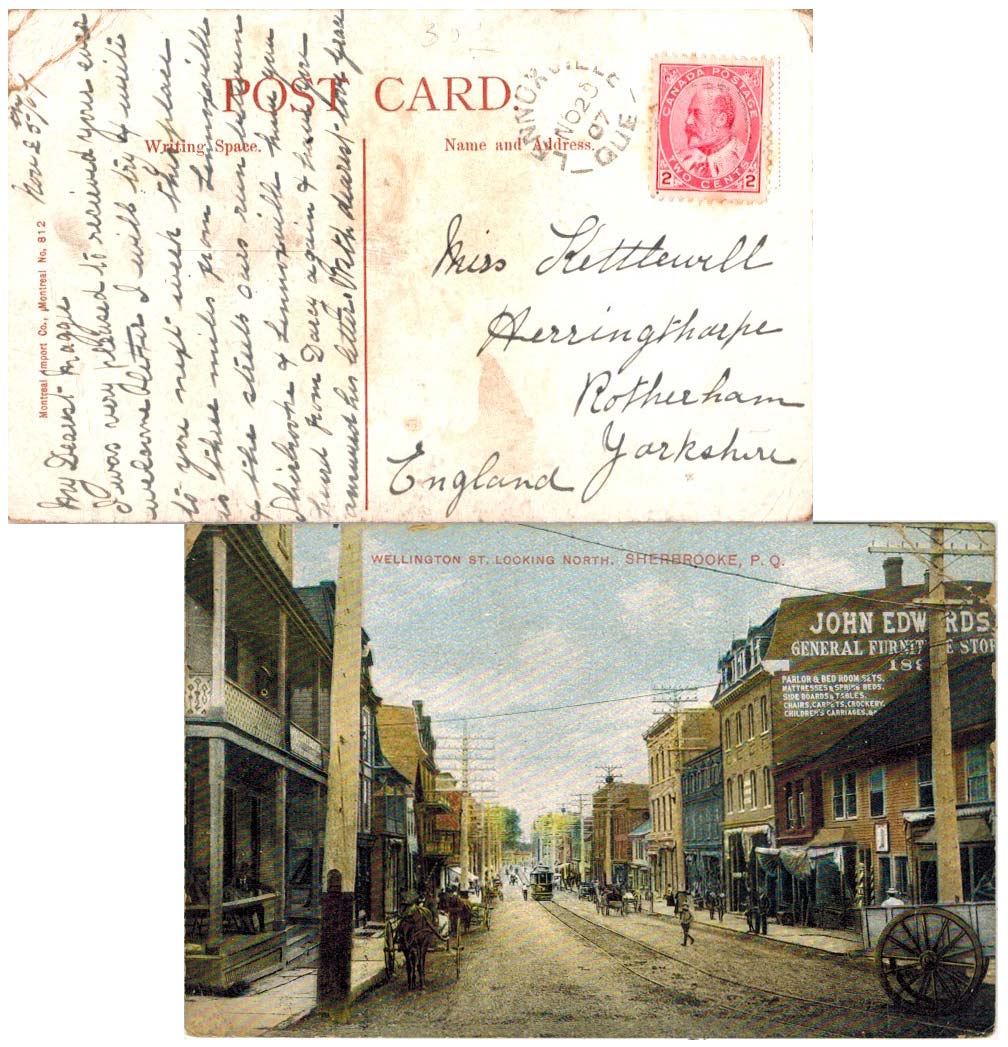 POST CARD.
Writing Space.
Name and Address.
LENNOXVILLE
NO 20
07
QUE
CANADA POSTAGE
2 TWO CENTS 2
Montreal Import Co., Montreal No. 812
Nov 25th/07
My Dearest Maggie
I was very pleased to received your ever
welcome letter I will try & write
to you next week this place
is three miles from Lennoxville
& the streets cars run between
Sherbrooke & Lennoxville have you
heard from Darcy again & have you
answered his letter With dearest love from
Miss Kettlewell
Herringthorpe
Rotherham
Yorkshire
England
WELLINGTON ST. LOOKING NORTH. SHERBROOKE, P. Q.
JOHN EDWARDS
GENERAL FURNITURE STOR
189
PARLOR & BED ROOM SETS.
MATTRESSES & SPRING BEDS.
SIDE BOARDS & TABLES.
CHAIRS, CARPETS, CROCKERY,
CHILDREN'S CARRIAGES, &